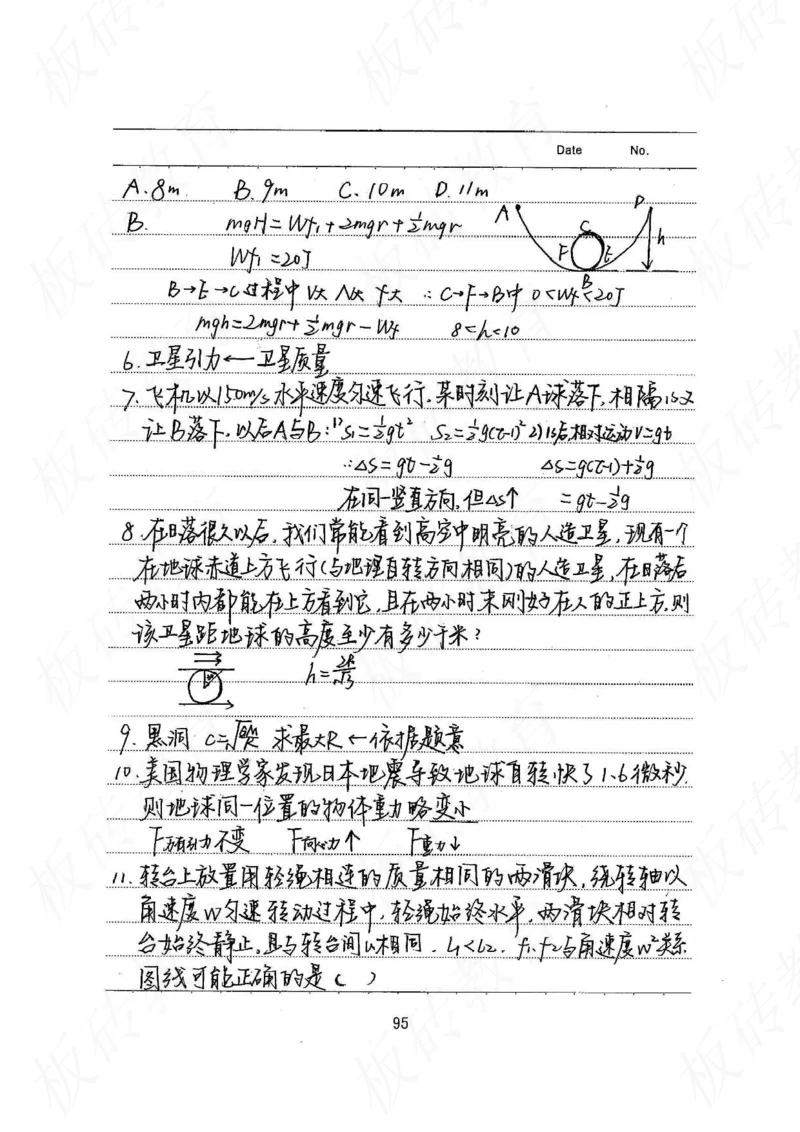 Date No.
A. 8m B. 9m C. 10m D. 11m
B. mgH = Wf₁ + 2mgr + ½mgr
A D C h F E B
Wf₁ = 20J
B→E→C过程中 V大 N大 f大 ∴ C→F→B中 0<Wf<20J
mgh = 2mgr + ½mgr - Wf 8<h<10
6. 卫星引力 ← 卫星质量
7. 飞机以150m/s水平速度匀速飞行. 某时刻让A球落下, 相隔1s又
让B落下, 以后A与B: 1) S₁=½gt² S₂=½g(t-1)² 2) 1s后, 相对运动V=gt
∴ΔS = gt - ½g ΔS = g(t-1) + ½g
在同一竖直方向, 但ΔS↑ = gt - ½g
8. 在日落很久以后, 我们常能看到高空中明亮的人造卫星, 现有一个
在地球赤道上方飞行(与地理自转方向相同)的人造卫星, 在日落后
两小时内都能在上方看到它, 且在两小时末刚好在人的正上方, 则
该卫星距地球的高度至少有多少千米?
9. 黑洞 求最大R ← 依据题意
10. 美国物理学家发现日本地震导致地球自转快了1.6微秒.
则地球同一位置的物体重力略变小
F万有引力不变 F向心力↑ F重力↓
11. 转台上放置用轻绳相连的质量相同的两滑块, 绕转轴以
角速度w匀速转动过程中, 轻绳始终水平, 两滑块相对转
台始终静止, 且与转台间u相同. L₁<L₂. f₁、f₂与角速度w²关系
图线可能正确的是( )
95
板砖教育